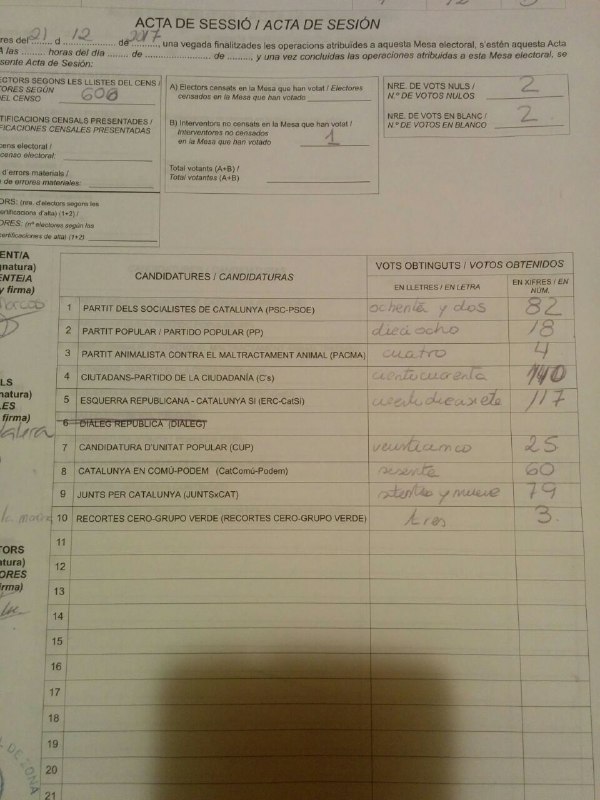 ACTA DE SESSIÓ / ACTA DE SESIÓN
res del 21 d 12 de 2017, una vegada finalitzades les operacions atribuïdes a aquesta Mesa electoral, s'estén aquesta Acta
A las ........ horas del día ........ de ........ de ........, y una vez concluidas las operaciones atribuidas a esta Mesa electoral, se
sente Acta de Sesión:
ECTORS SEGONS LES LLISTES DEL CENS /
TORES SEGÚN
DEL CENSO 600
TIFICACIONS CENSALS PRESENTADES /
FICACIONES CENSALES PRESENTADAS
cens electoral /
censo electoral:
d'errors materials /
de errores materiales:
ORS: (nre. d'electors segons les
ertificacions d'alta) (1+2) /
ORES: (nº electores según las
certificaciones de alta) (1+2)
A) Electors censats en la Mesa que han votat / Electores
censados en la Mesa que han votado
B) Interventors no censats en la Mesa que han votat /
Interventores no censados
en la Mesa que han votado 1
Total votants (A+B) /
Total votantes (A+B)
NRE. DE VOTS NULS /
N.º DE VOTOS NULOS 2
NRE. DE VOTS EN BLANC /
N.º DE VOTOS EN BLANCO 2
ENT/A
gnatura)
ENTE/A
y firma)
LS
gnatura)
LES
firma)
TORS
atura)
ORES
irma)
CANDIDATURES / CANDIDATURAS
VOTS OBTINGUTS / VOTOS OBTENIDOS
EN LLETRES / EN LETRA
EN XIFRES / EN NÚM.
1 PARTIT DELS SOCIALISTES DE CATALUNYA (PSC-PSOE) ochenta y dos 82
2 PARTIT POPULAR / PARTIDO POPULAR (PP) dieciocho 18
3 PARTIT ANIMALISTA CONTRA EL MALTRACTAMENT ANIMAL (PACMA) cuatro 4
4 CIUTADANS-PARTIDO DE LA CIUDADANÍA (C's) cientocuarenta 140
5 ESQUERRA REPUBLICANA - CATALUNYA SÍ (ERC-CatSí) cientodiecisiete 117
6 DIÀLEG REPÚBLICA (DIÀLEG)
7 CANDIDATURA D'UNITAT POPULAR (CUP) veinticinco 25
8 CATALUNYA EN COMÚ-PODEM (CatComú-Podem) sesenta 60
9 JUNTS PER CATALUNYA (JUNTSxCAT) setenta y nueve 79
10 RECORTES CERO-GRUPO VERDE (RECORTES CERO-GRUPO VERDE) tres 3
11
12
13
14
15
16
17
18
19
20
21
DE ZONA